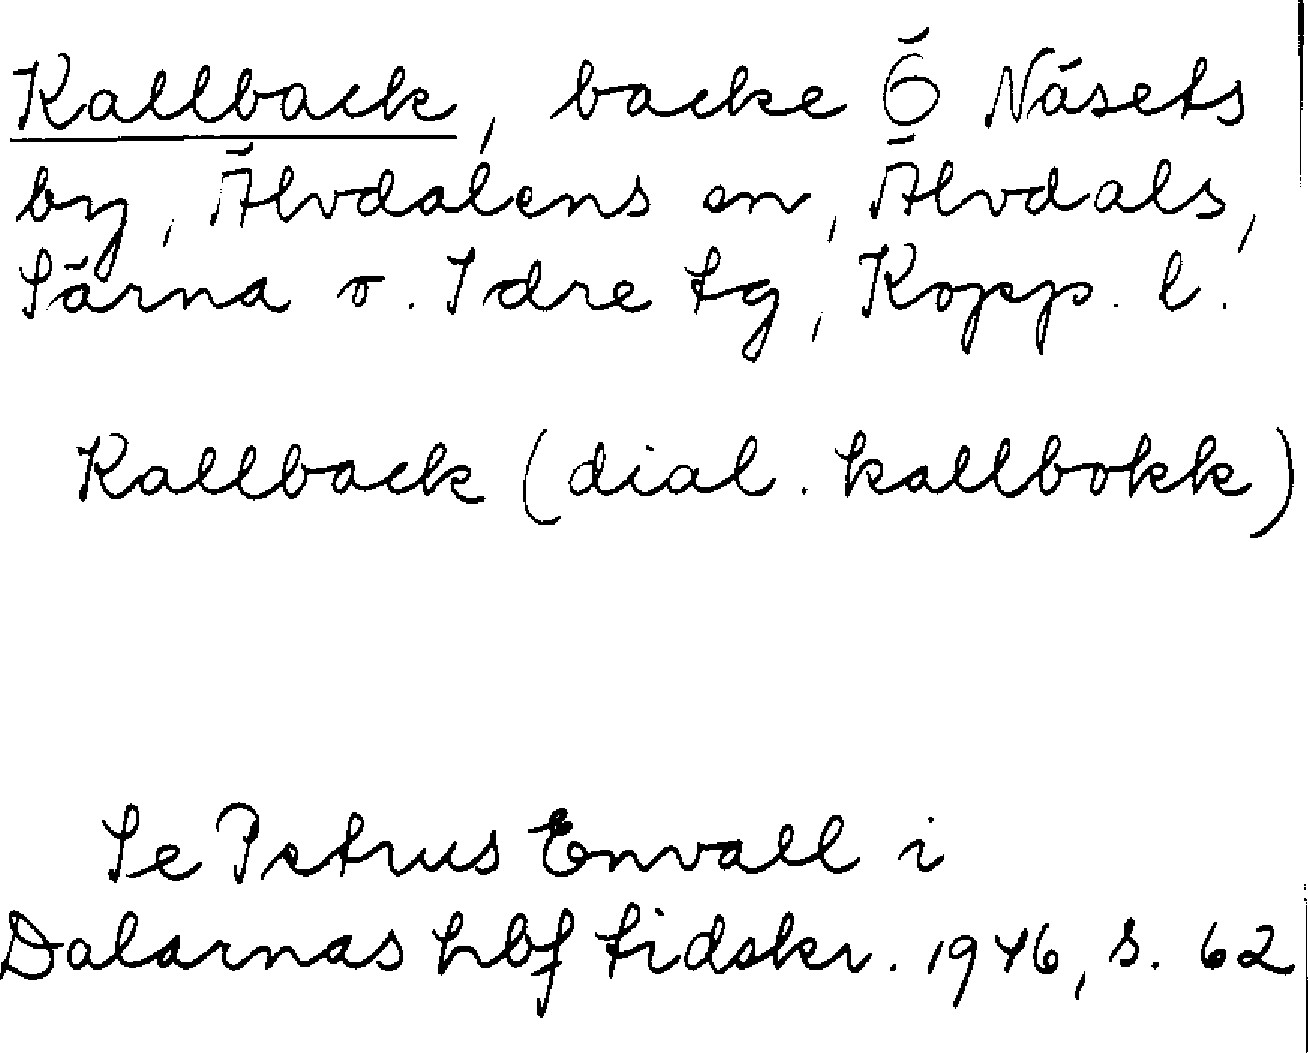 Kallback, backe Ö Näsets
by, Älvdalens sn, Älvdals,
Särna o. Idre tg, Kopp. l.
Kallback (dial. kallbokk)
Se Petrus Envall i
Dalarnas hbf tidskr. 1946, s. 62